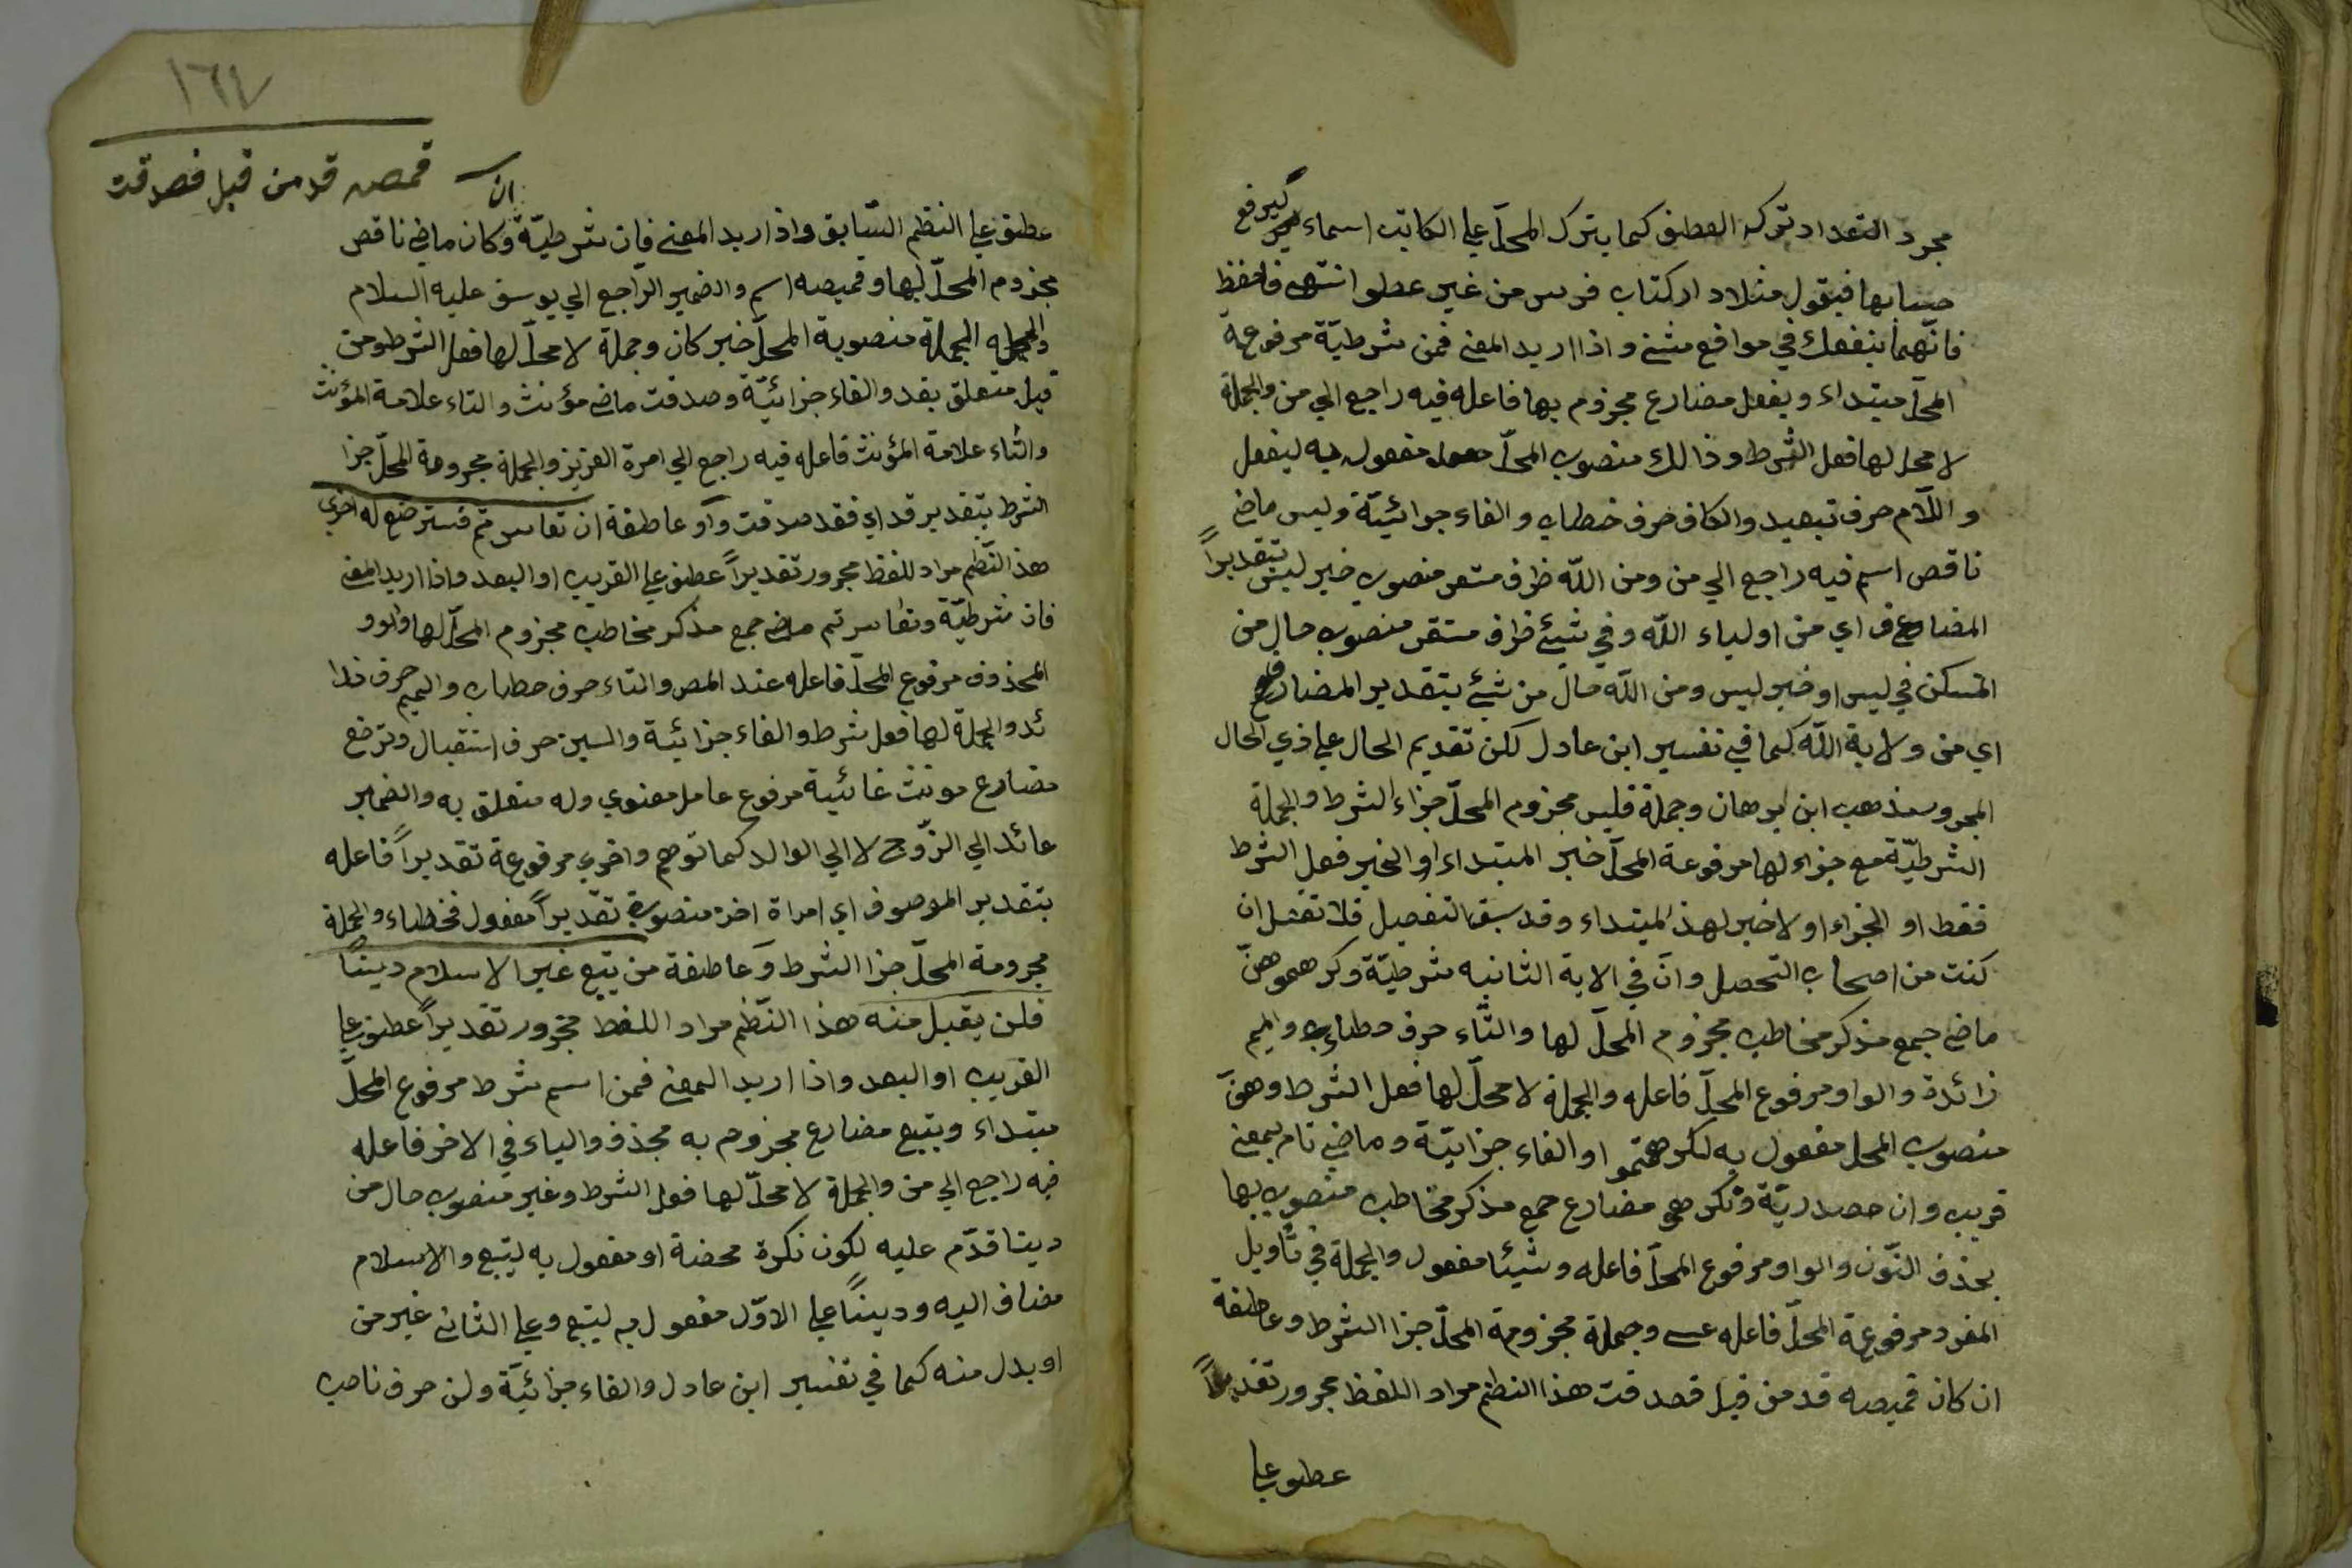 مجرد التعداد تركه العطف كما يترك المحلّ علي الكاتب اسماء ليرفع
حسابها فيقول مثلا دار كتاب فرس من غير عطف انتهى فاحفظ
فانّهما ينفعك في مواقع شتى واذا اريد المعنى فمن شرطيّة مرفوعة
المحلّ مبتداء ويفعل مضارع مجزوم بها فاعله فيه راجع الي من والجملة
لا محل لها فعل الشرط وذالك منصوب المحلّ مفعول به ليفعل
واللّام حرف تبعيد والكاف حرف خطاب والفاء جوائيّة وليس ماض
ناقص اسم فيه راجع الي من ومن اللّه ظرف مستقر منصوب خبر ليس بتقدير
المضاف اي من اولياء اللّه وفي شيئ ظرف مستقر منصوب حال من
المسكن في ليس او خبر ليس ومن اللّه حال من شيئ بتقدير المضاف
اي من ولاية اللّه كما في تفسير ابن عادل لكن تقديم الحال علي ذي الحال
المجرور مذهب ابن برهان وجملة فليس مجزوم المحلّ جزاء الشرط والجملة
الشرطيّة مع جزاء لها مرفوعة المحلّ خبر المبتداء او الخبر فعل الشرط
فقط او الجزاء او لا خبر لهذ المبتداء وقد سبق التفصيل فلا تغفل ان
كنت من اصحاب التحصل وانّ في الاية الثانيه شرطيّة وكرهتموهنّ
ماض جمع مذكر مخاطب مجزوم المحلّ لها والتّاء حرف خطاب والميم
زائدة والواو مرفوع المحلّ فاعله والجملة لا محلّ لها فعل الشرط وهنّ
منصوب المحل مفعول به لكرهتموا والفاء جزائيّة وماضي تام بمعنى
قريب وان مصدريّة وتكرهو مضارع جمع مذكر مخاطب منصوب بها
بحذف النّون والواو مرفوع المحلّ فاعله وشيئا مفعول والجملة في تأويل
المفرد مرفوعة المحلّ فاعله عسى وجملة مجزومة المحلّ جزا الشرط وعاطفة
ان كان قميصه قد من قبل فصدقت هذا النظم مراد اللفظ مجرور تقديراً
عطف علي
١٦٤
قمصه قد من قبل فصدقت
ان
عطف علي النظم السّابق واذا اريد المعنى فان شرطيّة وكان ماضي ناقص
مجزوم المحلّ لها وقميصه اسم والضمير الرّاجع الي يوسف عليه السلام
الجملة منصوبة المحلّ خبر كان وجملة لا محلّ لها فعل الشرط ومن
قبل متعلق بقد والفاء جزائيّة وصدقت ماضى مؤنث والتاء علامة المؤنث
والتاء علامة المؤنث فاعله فيه راجع الي امرة العزيز والجملة مجزومة المحلّ جزا
الشرط بتقدير قد اي فقد صدقت واو عاطفة ان تعاسرتم فسترضع له اخرى
هذ النّظم مراد للفظ مجرور تقديراً عطف علي القريب او البعد واذا اريد المعنى
فان شرطيّة وتعاسرتم ماض جمع مذكر مخاطب مجزوم المحلّ لها والوو
المحذوف مرفوع المحلّ فاعله عند المص والتاء حرف خطاب والميم حرف زا
ئد والجملة لها فعل شرط والفاء جزائية والسين حرف استقبال وترضع
مضارع مونث غائبة مرفوع عامل معنوي وله متعلق به والضمير
عائد الي الزّوج لا الي الوالد كما توهم واخري مرفوعة تقديراً فاعله
بتقدير الموصوف اي امراة اخرى منصوب تقديراً مفعول فخطاء والجملة
مجزومة المحلّ جزا الشرط وعاطفة من يتبع غير الاسلام ديناً
فلن يقبل منه هذا النّظم مراد اللفظ مجرور تقديراً عطف علي
القريب او البعد واذا اريد المعنى فمن اسم شرط مرفوع المحلّ
مبتداء ويتبع مضارع مجزوم به بحذف والياء في الاخر فاعله
فيه راجع الي من والجملة لا محلّ لها فعل الشرط وغير منصوب حال من
دينا قدّم عليه لكون نكرة محضة او مفعول به ليتبع والاسلام
مضاف اليه وديناً علي الاوّل مفعول به ليتبع وعلي الثانى غير من
او بدل منه كما في تفسير ابن عادل والفاء جزائيّة ولن حرف ناصب